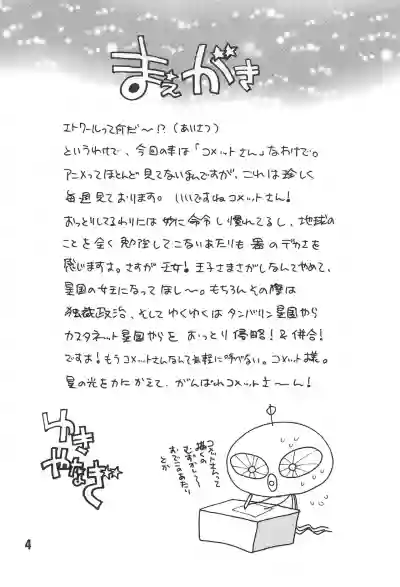 まえがき
エトワールって何だ～!?(あいさつ)
というわけで、今回の本は「コメットさん」なわけで。
アニメってほとんど見てないんですが、これは珍しく
毎週見ております。いいですねコメットさん!
おっとりしてるわりには妙に命令し慣れてるし、地球の
ことを全く勉強してこないあたりも器のデカさを
感じますよ。さすが王女!王子さまさがしなんてやめて、
星国の女王になってほし～。もちろんその際は
独裁政治、そしてゆくゆくはタンバリン星国から
カスタネット星国からをおっとり侵略!&併合!
ですよ!もうコメットさんなんて気軽に呼べない。コメット様。
星の光を力にかえて、がんばれコメットさ～ん!
ゆき
やなぎ
コメットさんって
描くの
むずかし～
おでこのあたり
とか
4